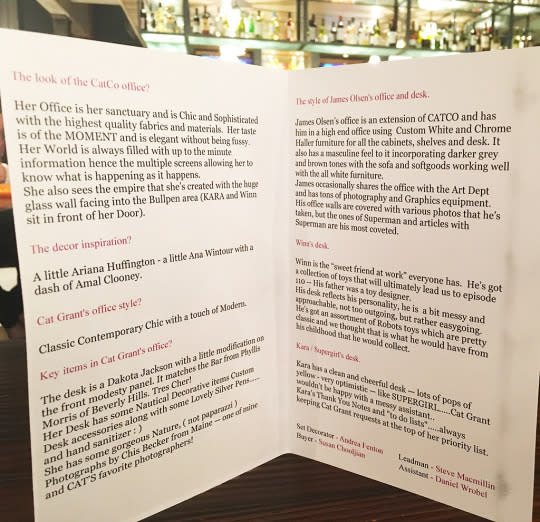 The look of the CatCo office?
Her Office is her sanctuary and is Chic and Sophisticated
with the highest quality fabrics and materials. Her taste
is of the MOMENT and is elegant without being fussy.
Her World is always filled with up to the minute
information hence the multiple screens allowing her to
know what is happening as it happens.
She also sees the empire that she's created with the huge
glass wall facing into the Bullpen area (KARA and Winn
sit in front of her Door).
The decor inspiration?
A little Ariana Huffington - a little Ana Wintour with a
dash of Amal Clooney.
Cat Grant's office style?
Classic Contemporary Chic with a touch of Modern.
Key items in Cat Grant's office?
The desk is a Dakota Jackson with a little modification on
the front modesty panel. It matches the Bar from Phyllis
Morris of Beverly Hills. Tres Cher!
Her Desk has some Nautical Decorative items Custom
Desk accessories along with some Lovely Silver Pens.....
and hand sanitizer : )
She has some gorgeous Nature, ( not paparazzi )
Photographs by Chis Becker from Maine — one of mine
and CAT'S favorite photographers!
The style of James Olsen's office and desk.
James Olsen's office is an extension of CATCO and has
him in a high end office using Custom White and Chrome
Haller furniture for all the cabinets, shelves and desk. It
also has a masculine feel to it incorporating darker grey
and brown tones with the sofa and softgoods working well
with the all white furniture.
James occasionally shares the office with the Art Dept
and has tons of photography and Graphics equipment.
His office walls are covered with various photos that he's
taken, but the ones of Superman and articles with
Superman are his most coveted.
Winn's desk.
Winn is the "sweet friend at work" everyone has. He's got
a collection of toys that will ultimately lead us to episode
110 — His father was a toy designer.
His desk reflects his personality, he is a bit messy and
approachable, not too outgoing, but rather easygoing.
He's got an assortment of Robots toys which are pretty
classic and we thought that is what he would have from
his childhood that he would collect.
Kara / Supergirl's desk.
Kara has a clean and cheerful desk — lots of pops of
yellow - very optimistic — like SUPERGIRL......Cat Grant
wouldn't be happy with a messy assistant...
Kara's Thank You Notes and "to do lists".....always
keeping Cat Grant requests at the top of her priority list.
Set Decorator - Andrea Fenton
Buyer - Susan Chooljian
Leadman - Steve Macmillin
Assistant - Daniel Wrobel